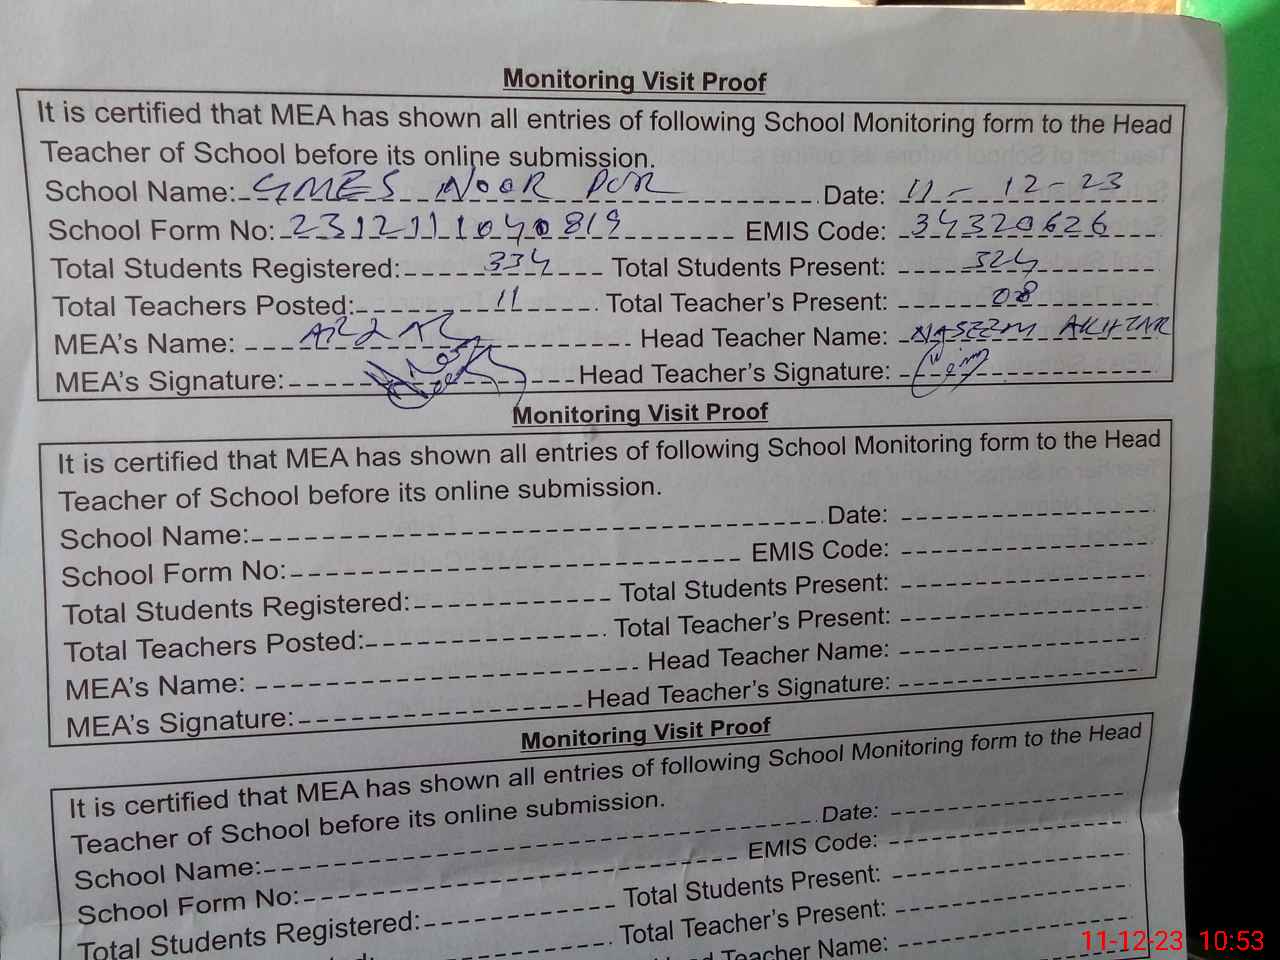 Monitoring Visit Proof
It is certified that MEA has shown all entries of following School Monitoring form to the Head
Teacher of School before its online submission.
School Name: GMES NOOR PUR Date: 11-12-23
School Form No: 2312111040819 EMIS Code: 34320626
Total Students Registered: 334 Total Students Present: 324
Total Teachers Posted: 11 Total Teacher's Present: 08
MEA's Name: Head Teacher Name: NASEEM AKHTAR
MEA's Signature: Head Teacher's Signature:
Monitoring Visit Proof
It is certified that MEA has shown all entries of following School Monitoring form to the Head
Teacher of School before its online submission.
School Name: Date:
School Form No: EMIS Code:
Total Students Registered: Total Students Present:
Total Teachers Posted: Total Teacher's Present:
MEA's Name: Head Teacher Name:
MEA's Signature: Head Teacher's Signature:
Monitoring Visit Proof
It is certified that MEA has shown all entries of following School Monitoring form to the Head
Teacher of School before its online submission.
School Name: Date:
School Form No: EMIS Code:
Total Students Registered: Total Students Present:
Total Teacher's Present:
Head Teacher Name:
11-12-23 10:53